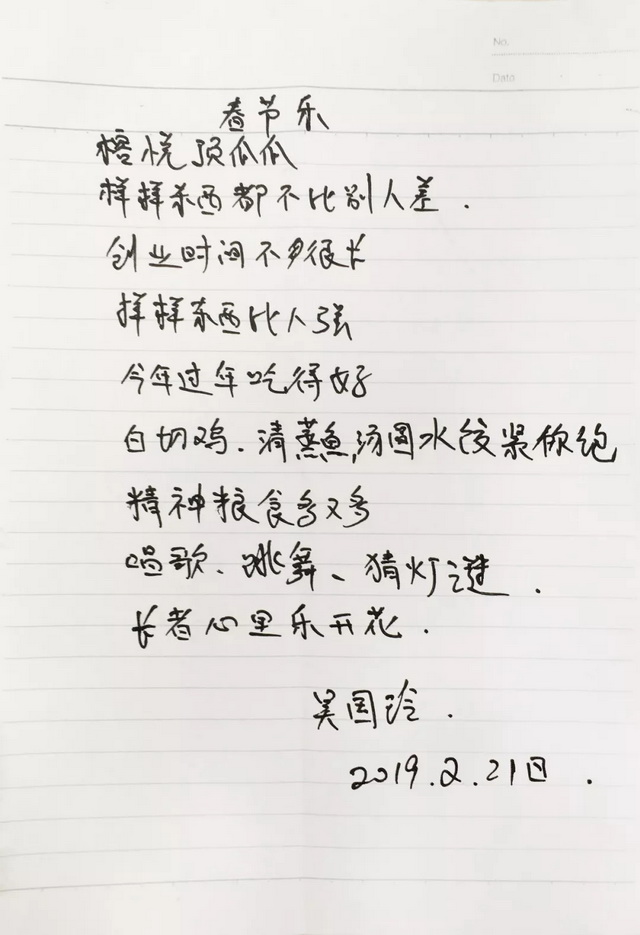 No.
Date
春节乐
榕悦顶瓜瓜
样样东西都不比别人差.
创业时间不多很长
样样东西比人强
今年过年吃得好
白切鸡.清蒸鱼,汤圆水饺紧你饱
精神粮食多又多
唱歌、跳舞、猜灯谜.
长者心里乐开花.
吴国玲.
2019.2.21日.